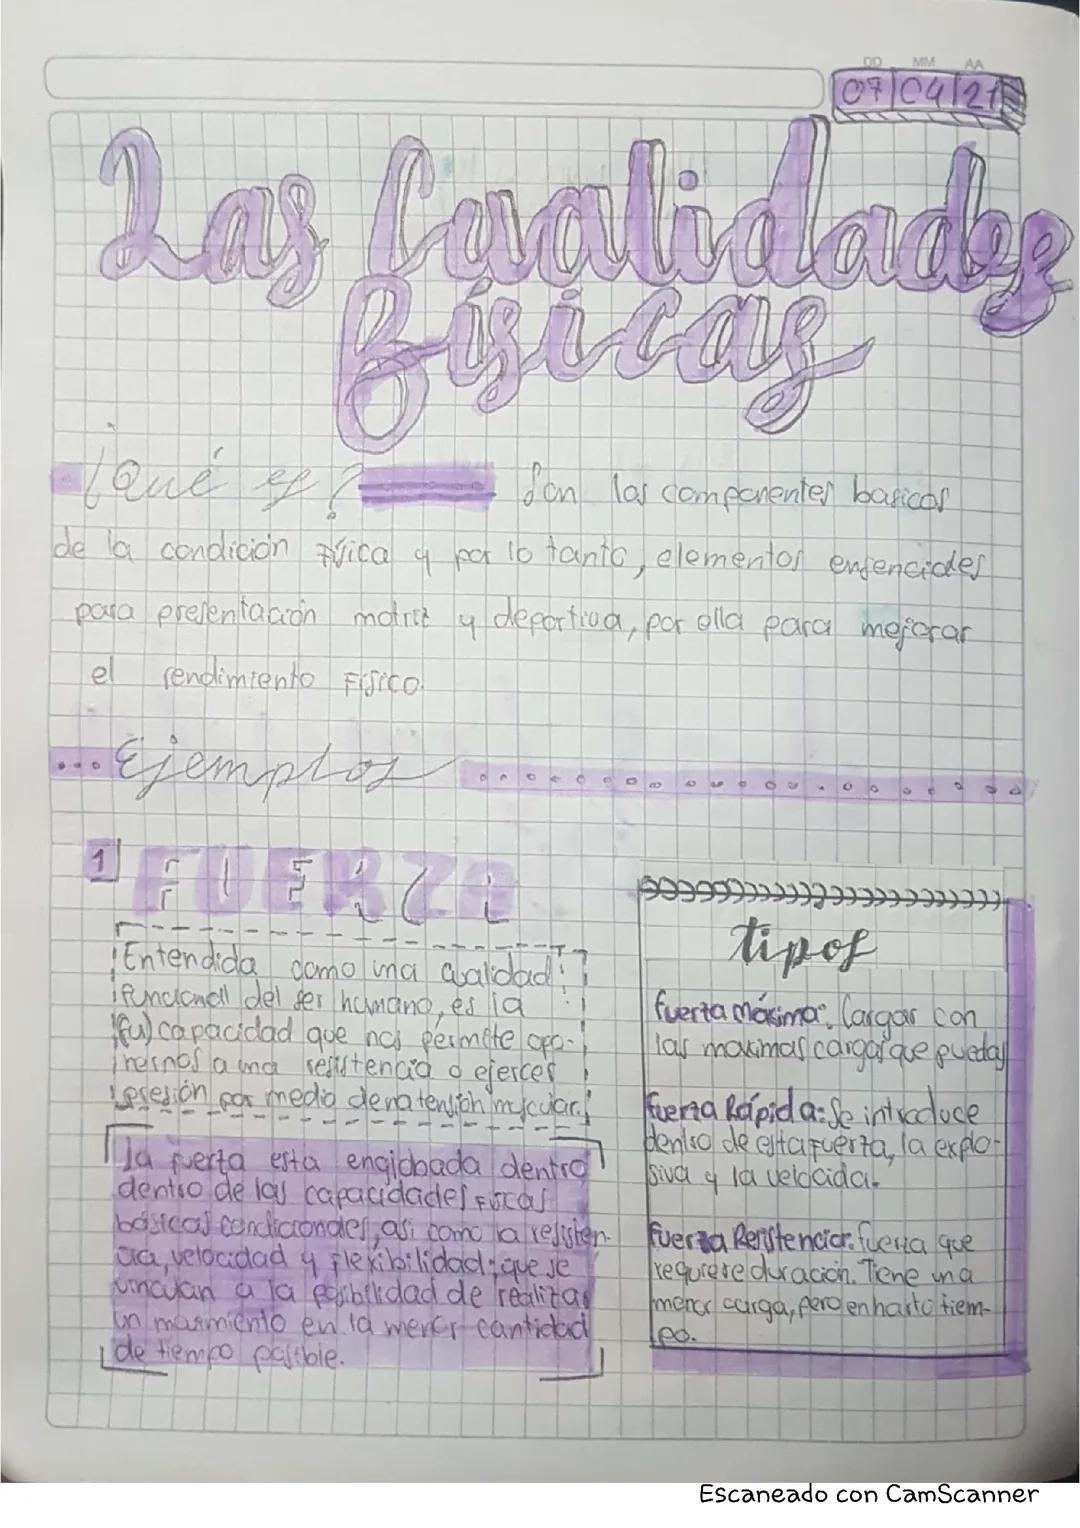 DD MM AA
07 04 21
Las Cualidades
Físicas
¿Qué es? Son las componentes basicas
de la condición Física y por lo tanto, elementos
para presentación motriz y deportiva, por ella para mejorar
el rendimiento Físico.
Ejemplos
1 FUERZA
Entendida como una cualidad
funcional del ser humano, es la
(fu) capacidad que nos permite opo-
nernos a una resistencia o ejercer
presión por medio de na tensión muscular.
la fuerza esta englobada dentro
dentro de las capacidades Fiscas
básicas condicionales, asi como la resisten-
cia, velocidad y flexibilidad; que se
vinculan a la posibilidad de realizar
un movimiento en la menor cantidad
de tiempo posible.
tipos
Fuerza Máxima: Cargar con
las maximas cargas que puedas
Fuerza Rápida: Se introduce
dentro de esta Fuerza, la explo-
siva y la velocidad.
Fuerza Resistencia: fuerza que
requiere duración. Tiene una
menor carga, pero en harto tiem-
po.
Escaneado con CamScanner